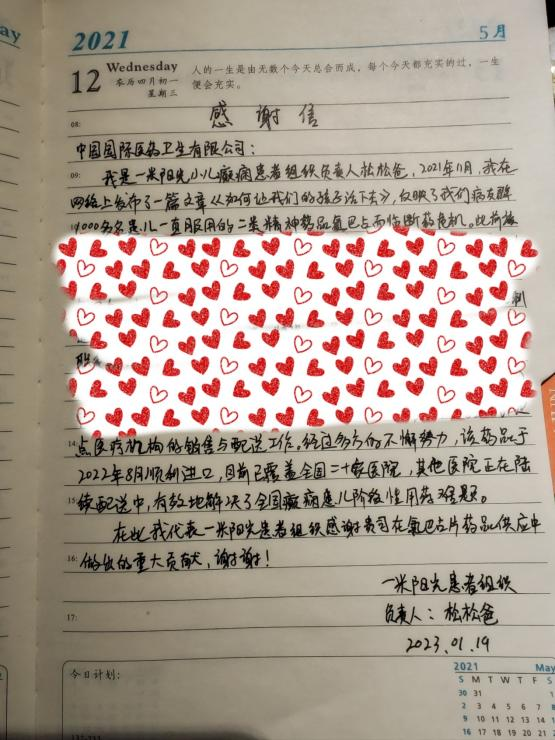 ay
2021
5月
12
Wednesday
农历四月初一
星期三
人的一生是由无数个今天总会而成，每个今天都充实的过，一生
便会充实。
08:
感谢信
中国国际医药卫生有限公司：
09:
我是一米阳光小儿癫痫患者组织负责人松松爸，2021年11月，我在
网络上发布了一篇文章《如何让我们的孩子活下去》，反映了我们病友群
1000多名患儿一直服用的二类精神药品氯巴占面临断药危机。此
14:
点医疗机构的销售与配送工作。经过多方的不懈努力，该药品于
2022年8月顺利进口，目前已覆盖全国二十家医院，其他医院正在陆
15:
续配送中，有效地解决了全国癫痫患儿阶段性用药难题。
在此我代表一米阳光患者组织感谢贵司在氯巴占片药品供应中
16:
做出的重大贡献，谢谢！
一米阳光患者组织
17:
负责人：松松爸
2023.01.19
今日计划：
2021
May
S M T W T F S
30 31 1
2 3 4 5 6 7 8
9 10 11 12 13 14
16 17 18 19 20 21